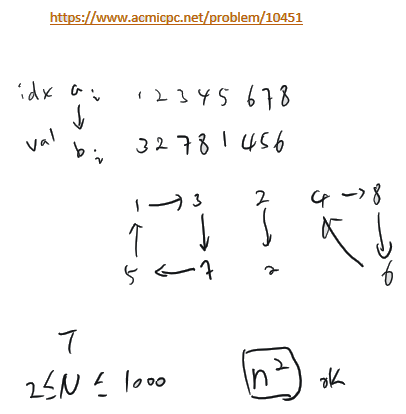 https://www.acmicpc.net/problem/10451
idx a i 1 2 3 4 5 6 7 8
val b i 3 2 7 8 1 4 5 6
1 → 3 2 4 → 8
5 ← 7 2 6
T
2 ≤ N ≤ 1000 n² ok